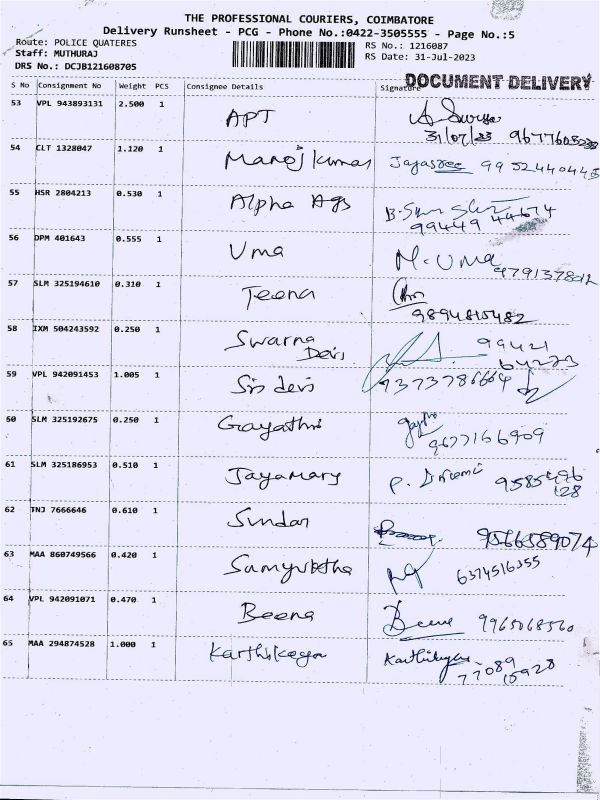 THE PROFESSIONAL COURIERS, COIMBATORE
Delivery Runsheet - PCG - Phone No.:0422-3505555 - Page No.:5
Route: POLICE QUATERES RS No.: 1216087
Staff: MUTHURAJ RS Date: 31-Jul-2023
DRS No.: DCJB121608705
DOCUMENT DELIVERY
S No Consignment No Weight PCS Consignee Details Signature
53 VPL 943893131 2.500 1 APT
31/07/23
54 CLT 1328047 1.120 1 Manoj kumar Jayasree 9952440445
55 HSR 2804213 0.530 1 Alpha Ags
99449 44674
56 DPM 401643 0.555 1 Uma M. UMA
57 SLM 325194610 0.310 1 Teena
9894815482
58 IXM 504243592 0.250 1 Swarna Devi 99421
64273
59 VPL 942091453 1.005 1 Sri devi 9373786664
60 SLM 325192675 0.250 1 Gayathri
9677166909
61 SLM 325186953 0.510 1 Jayamary 9585496
128
62 TNJ 7666646 0.610 1 Sundar 9566589074
63 MAA 860749566 0.420 1 Samyuktha 6374516355
64 VPL 942091071 0.470 1 Beena 9965068560
65 MAA 294874528 1.000 1 Karthikeyan Karthikeyan
77089
15928